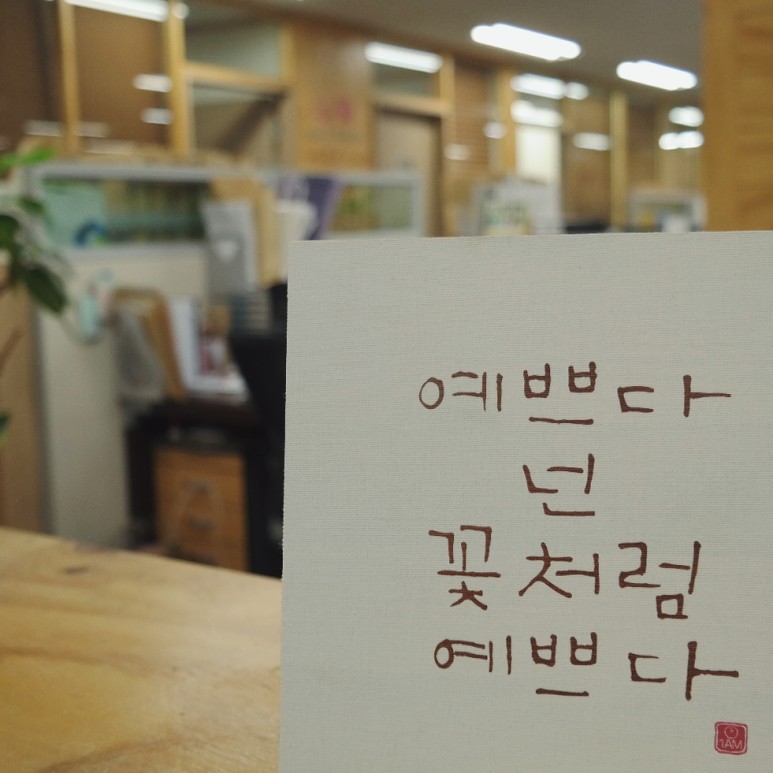 예쁘다
넌
꽃처럼
예쁘다
1AM